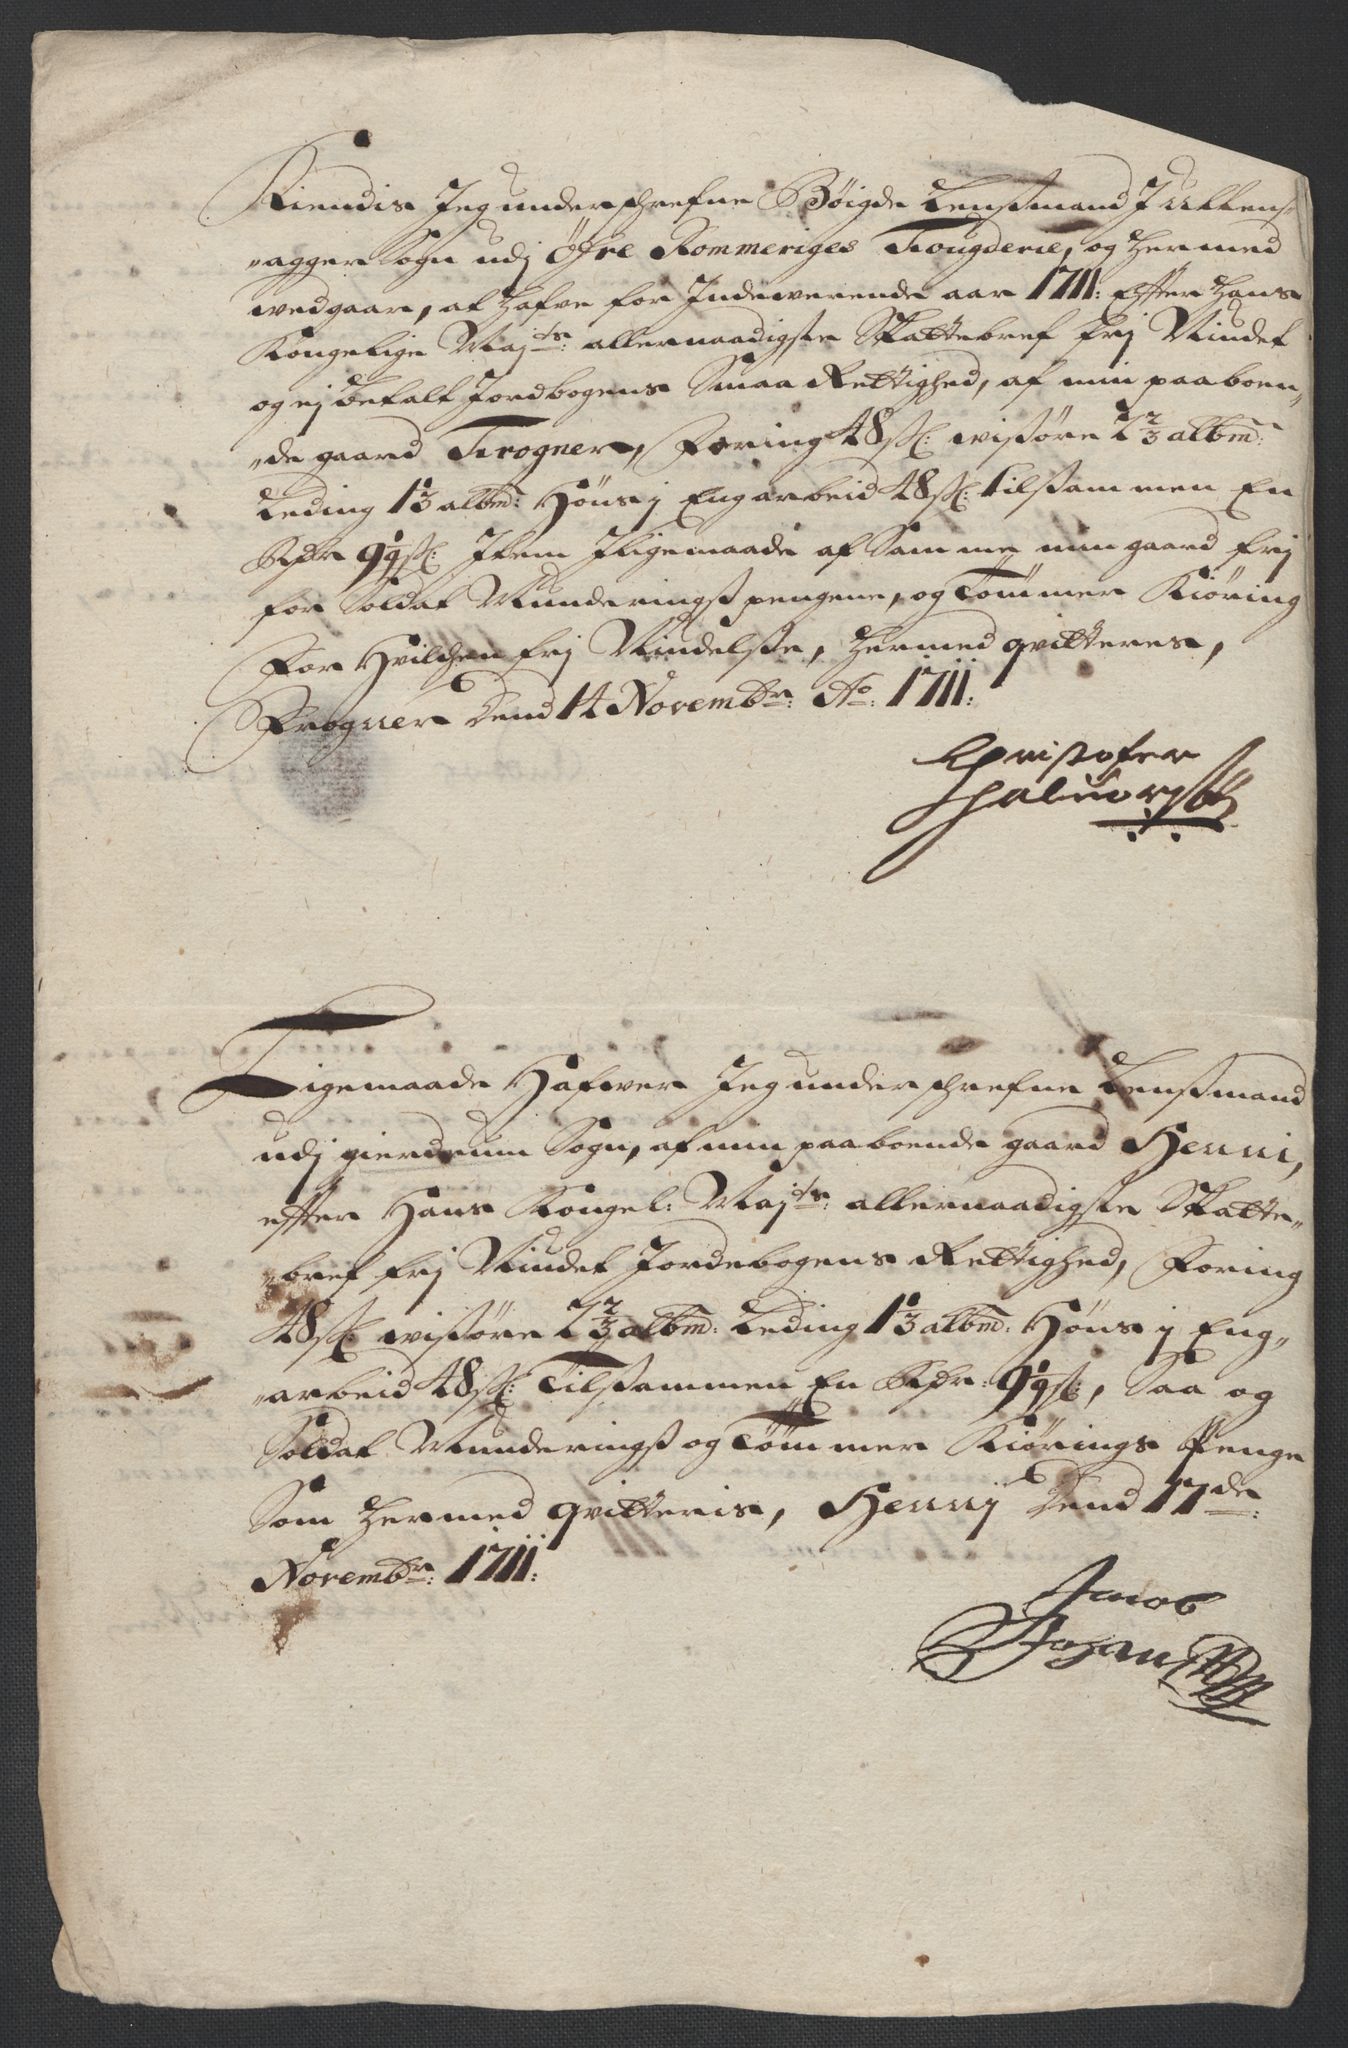 Kiendis Jeg underschrefne Böigde Lensmand J Ullens„
„agger Sogn udj Öfre Rommeriges Fougderie, og hermed
wedgaar, at hafve for Indeværende aar 1711: Efter Hans
Kongelige Maj:ts: allernaadigste Skattebref frj Nindet
og ej betalt Jordbogens Smaa Rettighed, af min paaboen„
„de gaard Frogner, Foring 48 sk: wisöre 2 2/3 albm:
Leding 1 1/3 albm: Höns j Eng arbeid 48 sk: tilsammen En
Rdr 9 1/9 sk: Item Jligemaade af Samme min gaard frj
for Soldat Munderings pengene, og Tömmer Kiöring
For Hvilchen frj Nindelse, hermed qvitteres,
Frogner Dend 14 Novembr: Ao: 1711:
Christofer
Halvors
Ligemaade Hafwer Jeg underschrefne Lensmand
udj gierdrum Sogn, af min paaboende gaard Henni,
efter Hans Kongel: Maj:ts: allernaadigste Skatte„
„bref frj Nindet Jordebogens Rettighed, Foring
48 sk: wisöre 2 2/3 albm: Leding 1 1/3 albm: Höns j Eng„
„arbeid 48 sk: Tilsammen En Rdr: 9 1/9 sk:, Saa og
Soldat Munderings og Tömmer Kiörings Penge
Som hermed qvitteris, Hennj Dend 17de:
Novembr: 1711:
Jacob
Johan